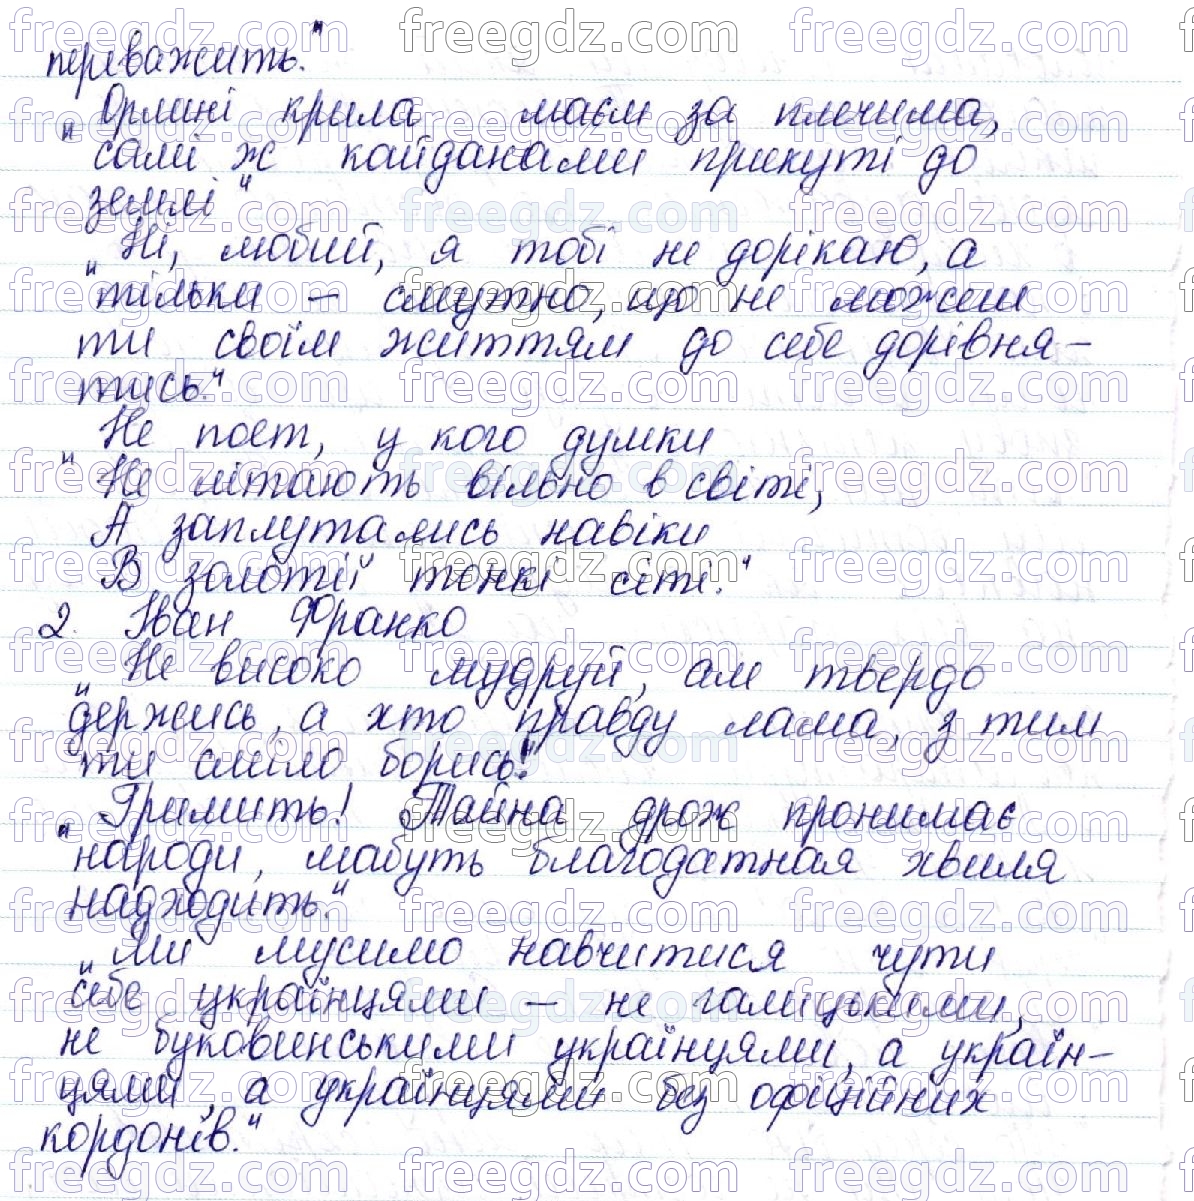 переважить."
"Орлині крила маєм за плечима,
самі ж кайданами прикуті до
землі"
"Ні, любий, я тобі не дорікаю, а
тільки – смутно, що не можеш
ти своїм життям до себе дорівня–
тись."
"Не поет, у кого думки
Не літають вільно в світі,
А заплутались навіки
В золотії тонкі сіті."
2. Іван Франко
"Не високо мудруй, ал твердо
держись, а хто правду лама, з тим
ти сміло борись!"
"Гримить! Тайна дрож пронимає
народи, мабуть благодатная хвиля
надходить."
"Ми мусимо навчитися чути
себе українцями – не галицькими,
не буковинськими українцями, а україн–
цями, а українцями без офіційних
кордонів."
freegdz.com